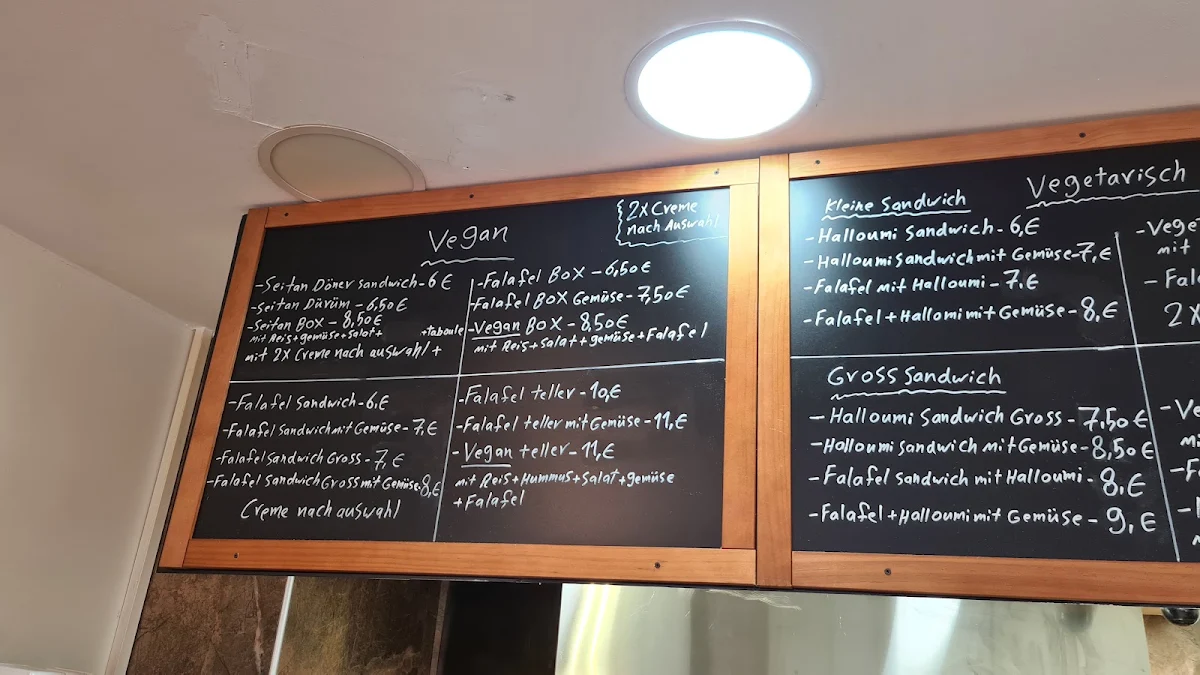 Vegan
{2x Creme
nach Auswahl
-Seitan Döner Sandwich-6 €
-Seitan Dürüm-6,50€
-Seitan Box-8,50€
mit Reis+gemüse+Salat+ +taboule
mit 2x Creme nach auswahl +
-Falafel Box-6,50€
-Falafel Box Gemüse-7,50€
-Vegan Box-8,50€
mit Reis+Salat+gemüse+Falafel
-Falafel Sandwich-6,€
-Falafel Sandwich mit Gemüse-7,€
-Falafel Sandwich Gross-7,€
-Falafel Sandwich Gross mit Gemüse-8,€
Creme nach auswahl
-Falafel teller-10,€
-Falafel teller mit Gemüse-11,€
-Vegan teller-11,€
mit Reis+Hummus+Salat+gemüse
+Falafel
Vegetarisch
Kleine Sandwich
-Halloumi Sandwich-6,€
-Halloumi Sandwich mit Gemüse-7,€
-Falafel mit Halloumi-7,€
-Falafel+Hallomi mit Gemüse-8,€
mit
2x
Gross Sandwich
-Halloumi Sandwich Gross-7,50€
-Halloumi Sandwich mit Gemüse-8,50€
-Falafel Sandwich mit Halloumi-8,€
-Falafel+Halloumi mit Gemüse-9,€